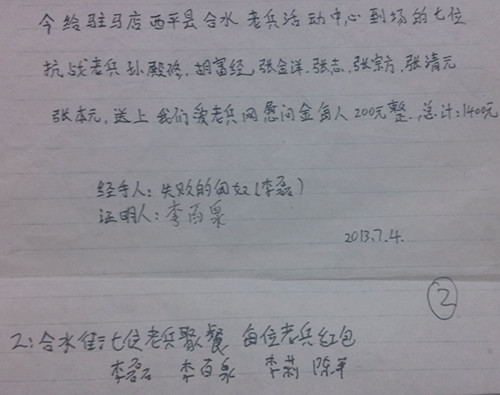 今给驻马店西平县合水老兵活动中心到场的七位
抗战老兵孙殿修.胡富经.张全洋.张志.张宗方.张清元
张本元,送上我们爱老兵网慰问金每人200元整.总计:1400元
经手人:失败的匈奴(李磊)
证明人:李百泉
2013.7.4.
②
2:合水街七位老兵聚餐 每位老兵红包
李磊 李百泉 李莉 陈平